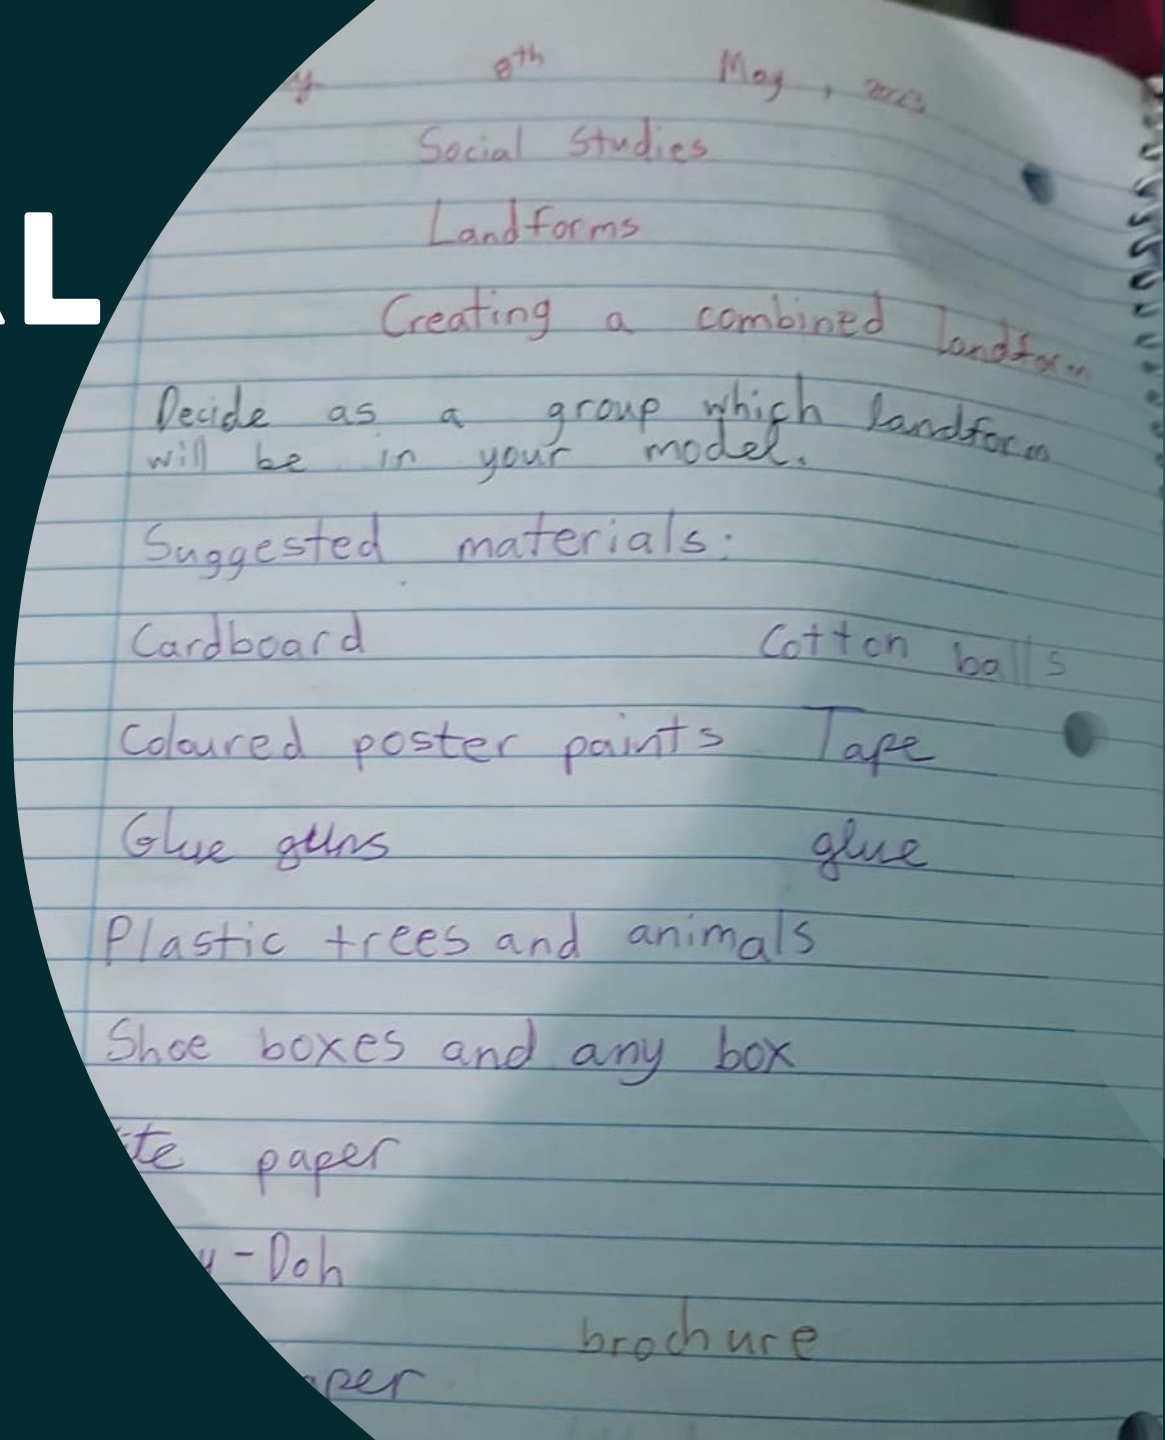 L
8th May, 2023
Social Studies
Landforms
Creating a combined landform
Decide as a group which landform
will be in your model.
Suggested materials:
Cardboard Cotton balls
Coloured poster paints Tape
Glue guns glue
Plastic trees and animals
Shoe boxes and any box
paper
-Doh
brochure